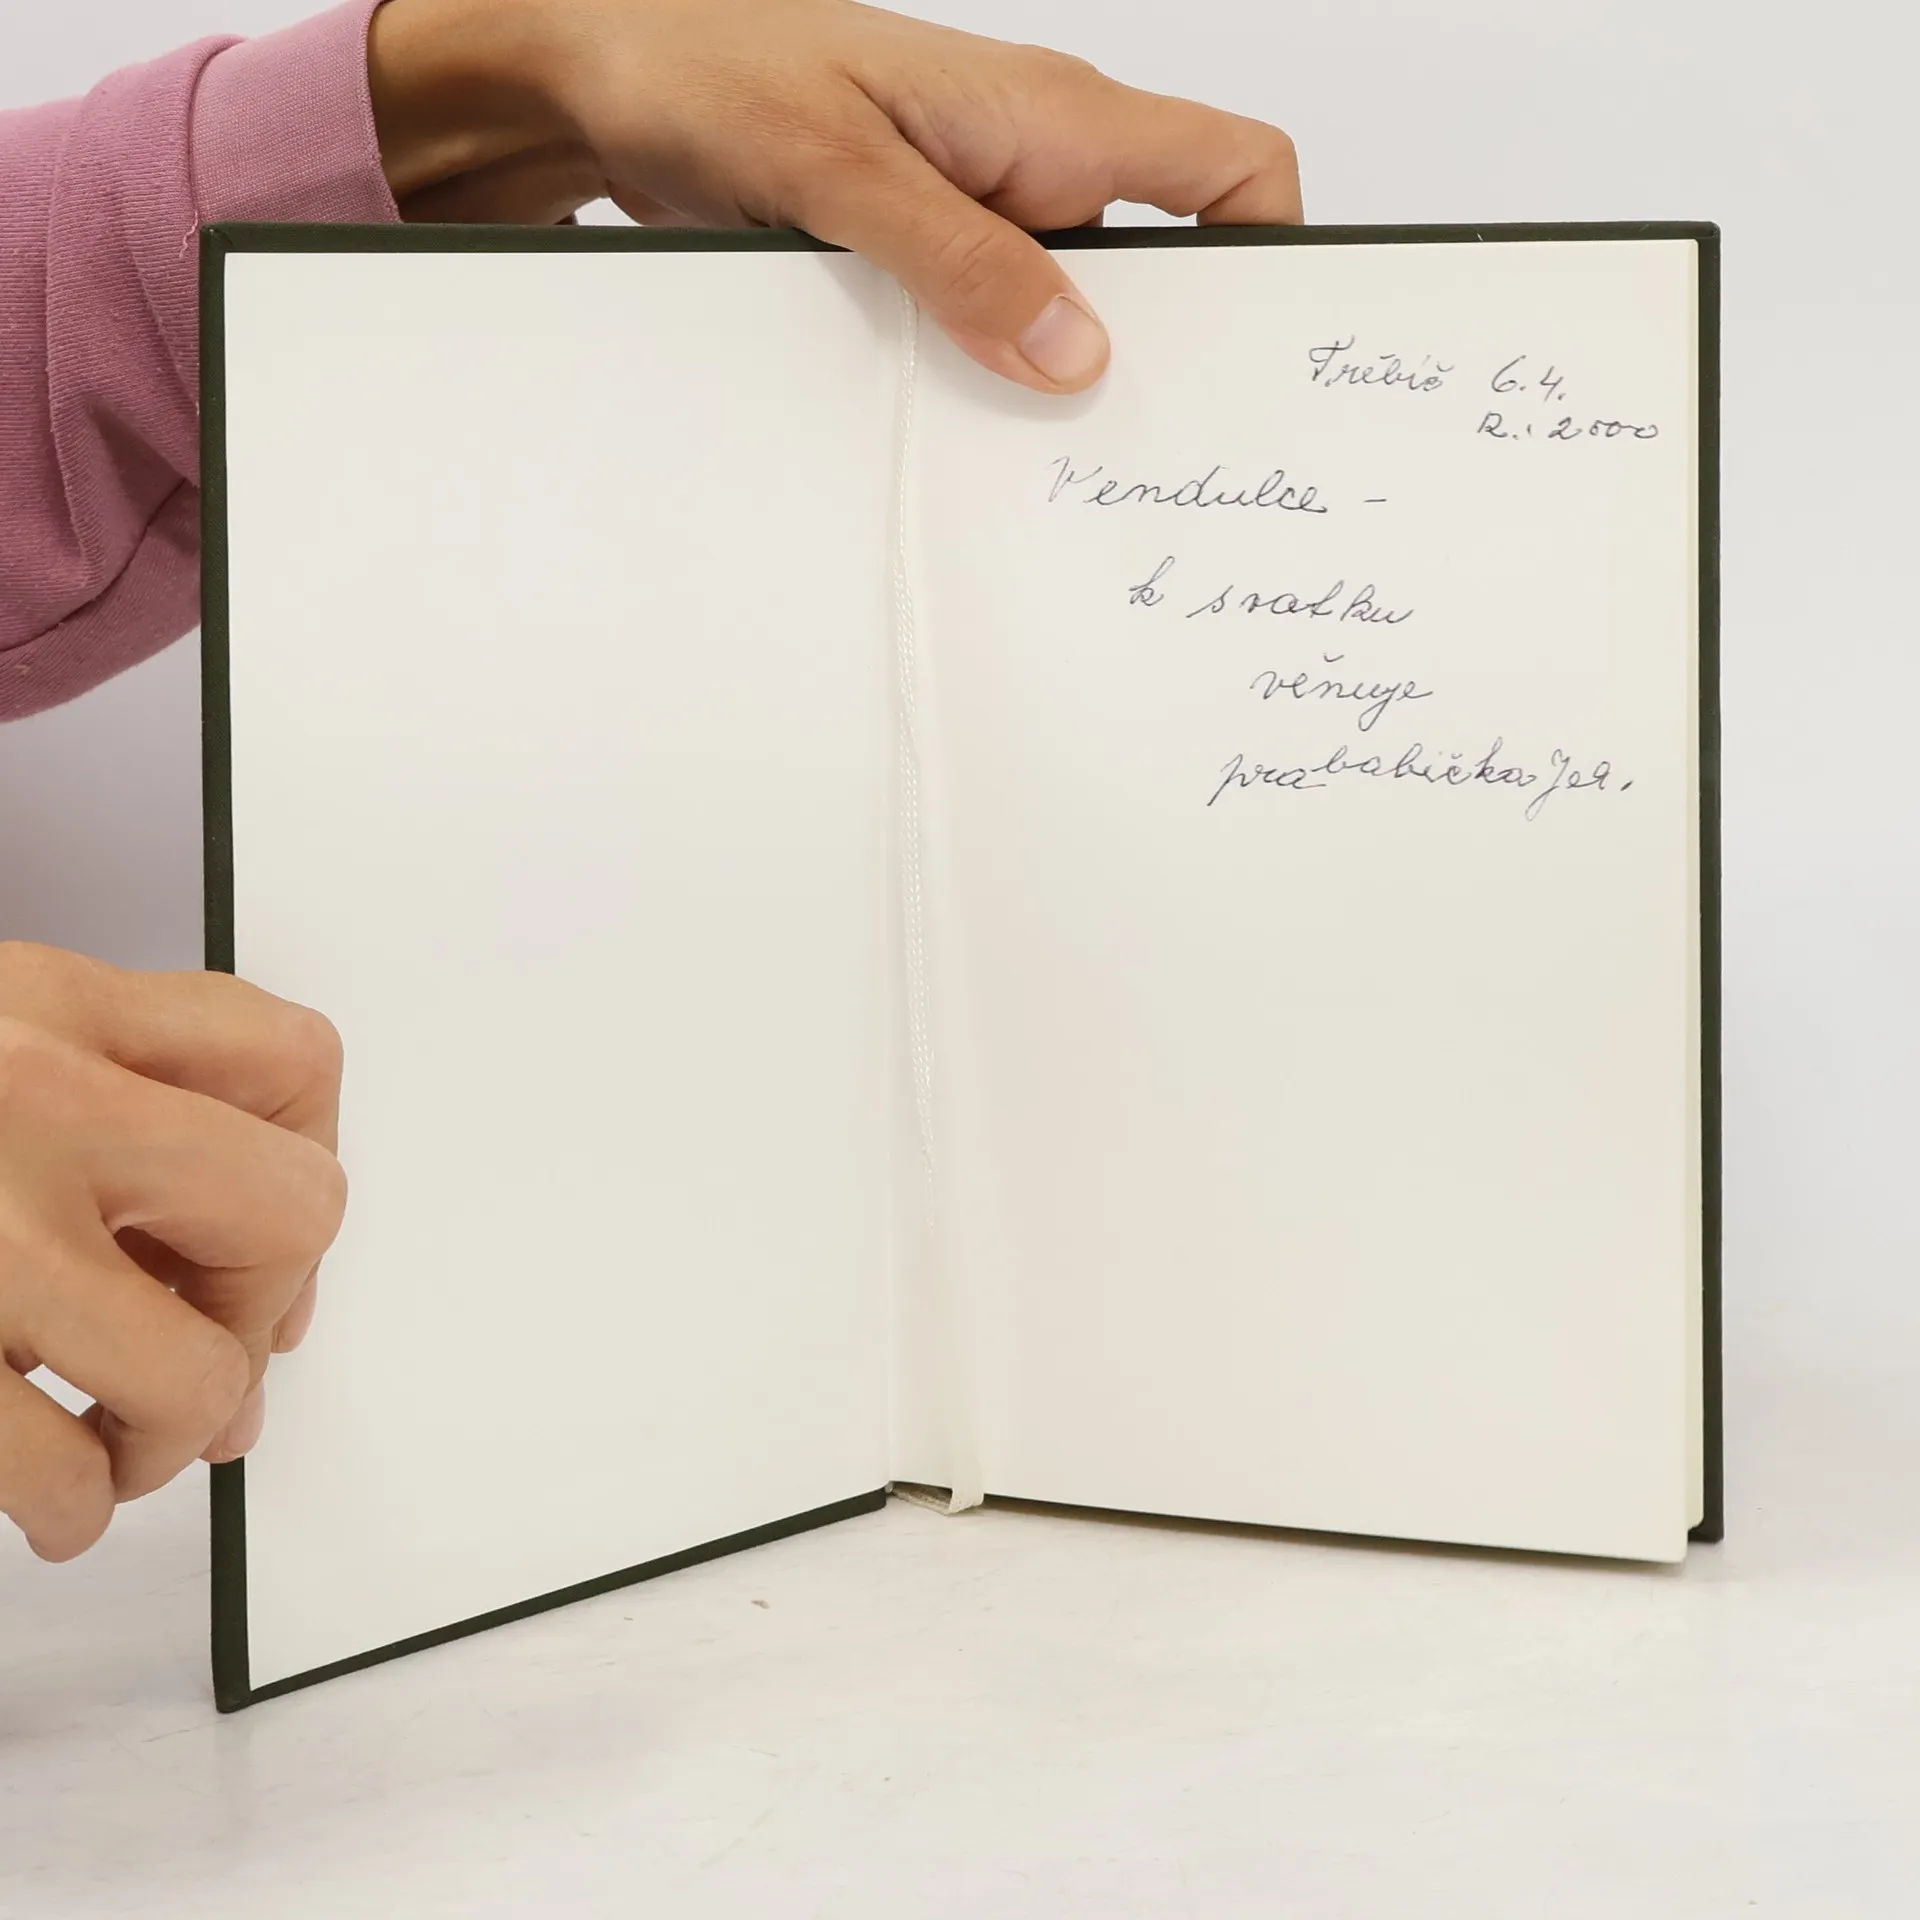 Třebíč 6.4.
R.: 2000
Vendulce -
k svatku
věnuje
prababička Jel.